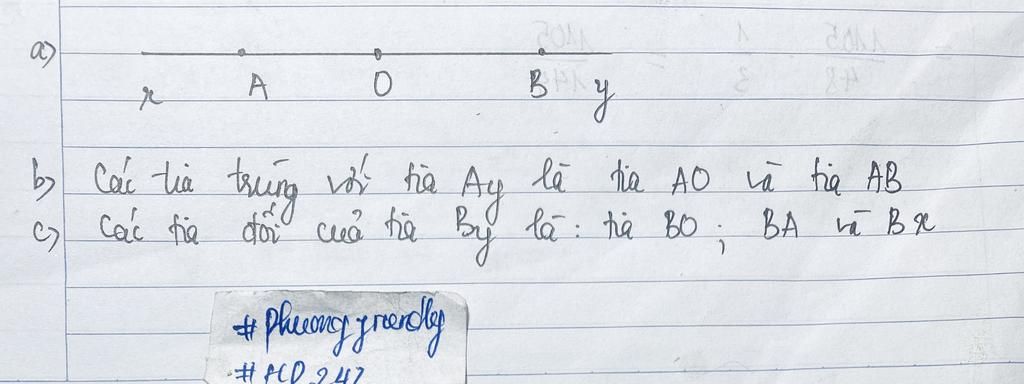 a)
x A O B y
b) Các tia trùng với tia Ay là tia AO và tia AB
c) Các tia đối của tia By là: tia BO; BA và Bx
#phuongfriendly
#HD247